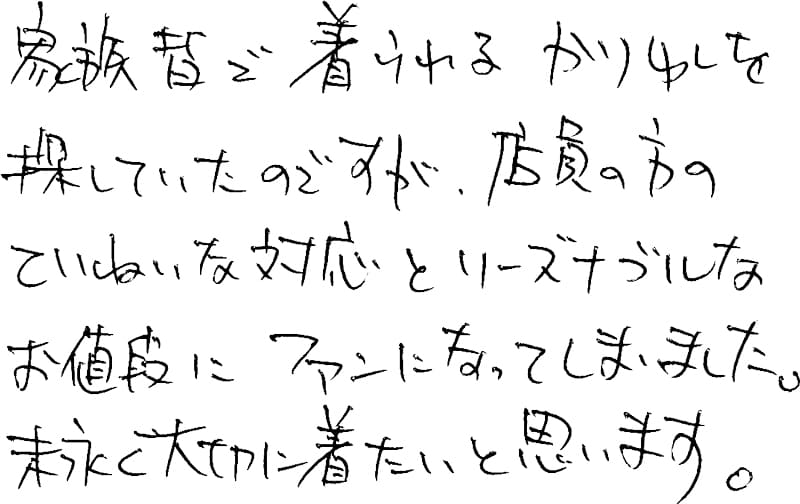 家族皆で着られるかりゆしを
探していたのですが、店員の方の
ていねいな対応とリーズナブルな
お値段にファンになってしまいました。
末永く大切に着たいと思います。